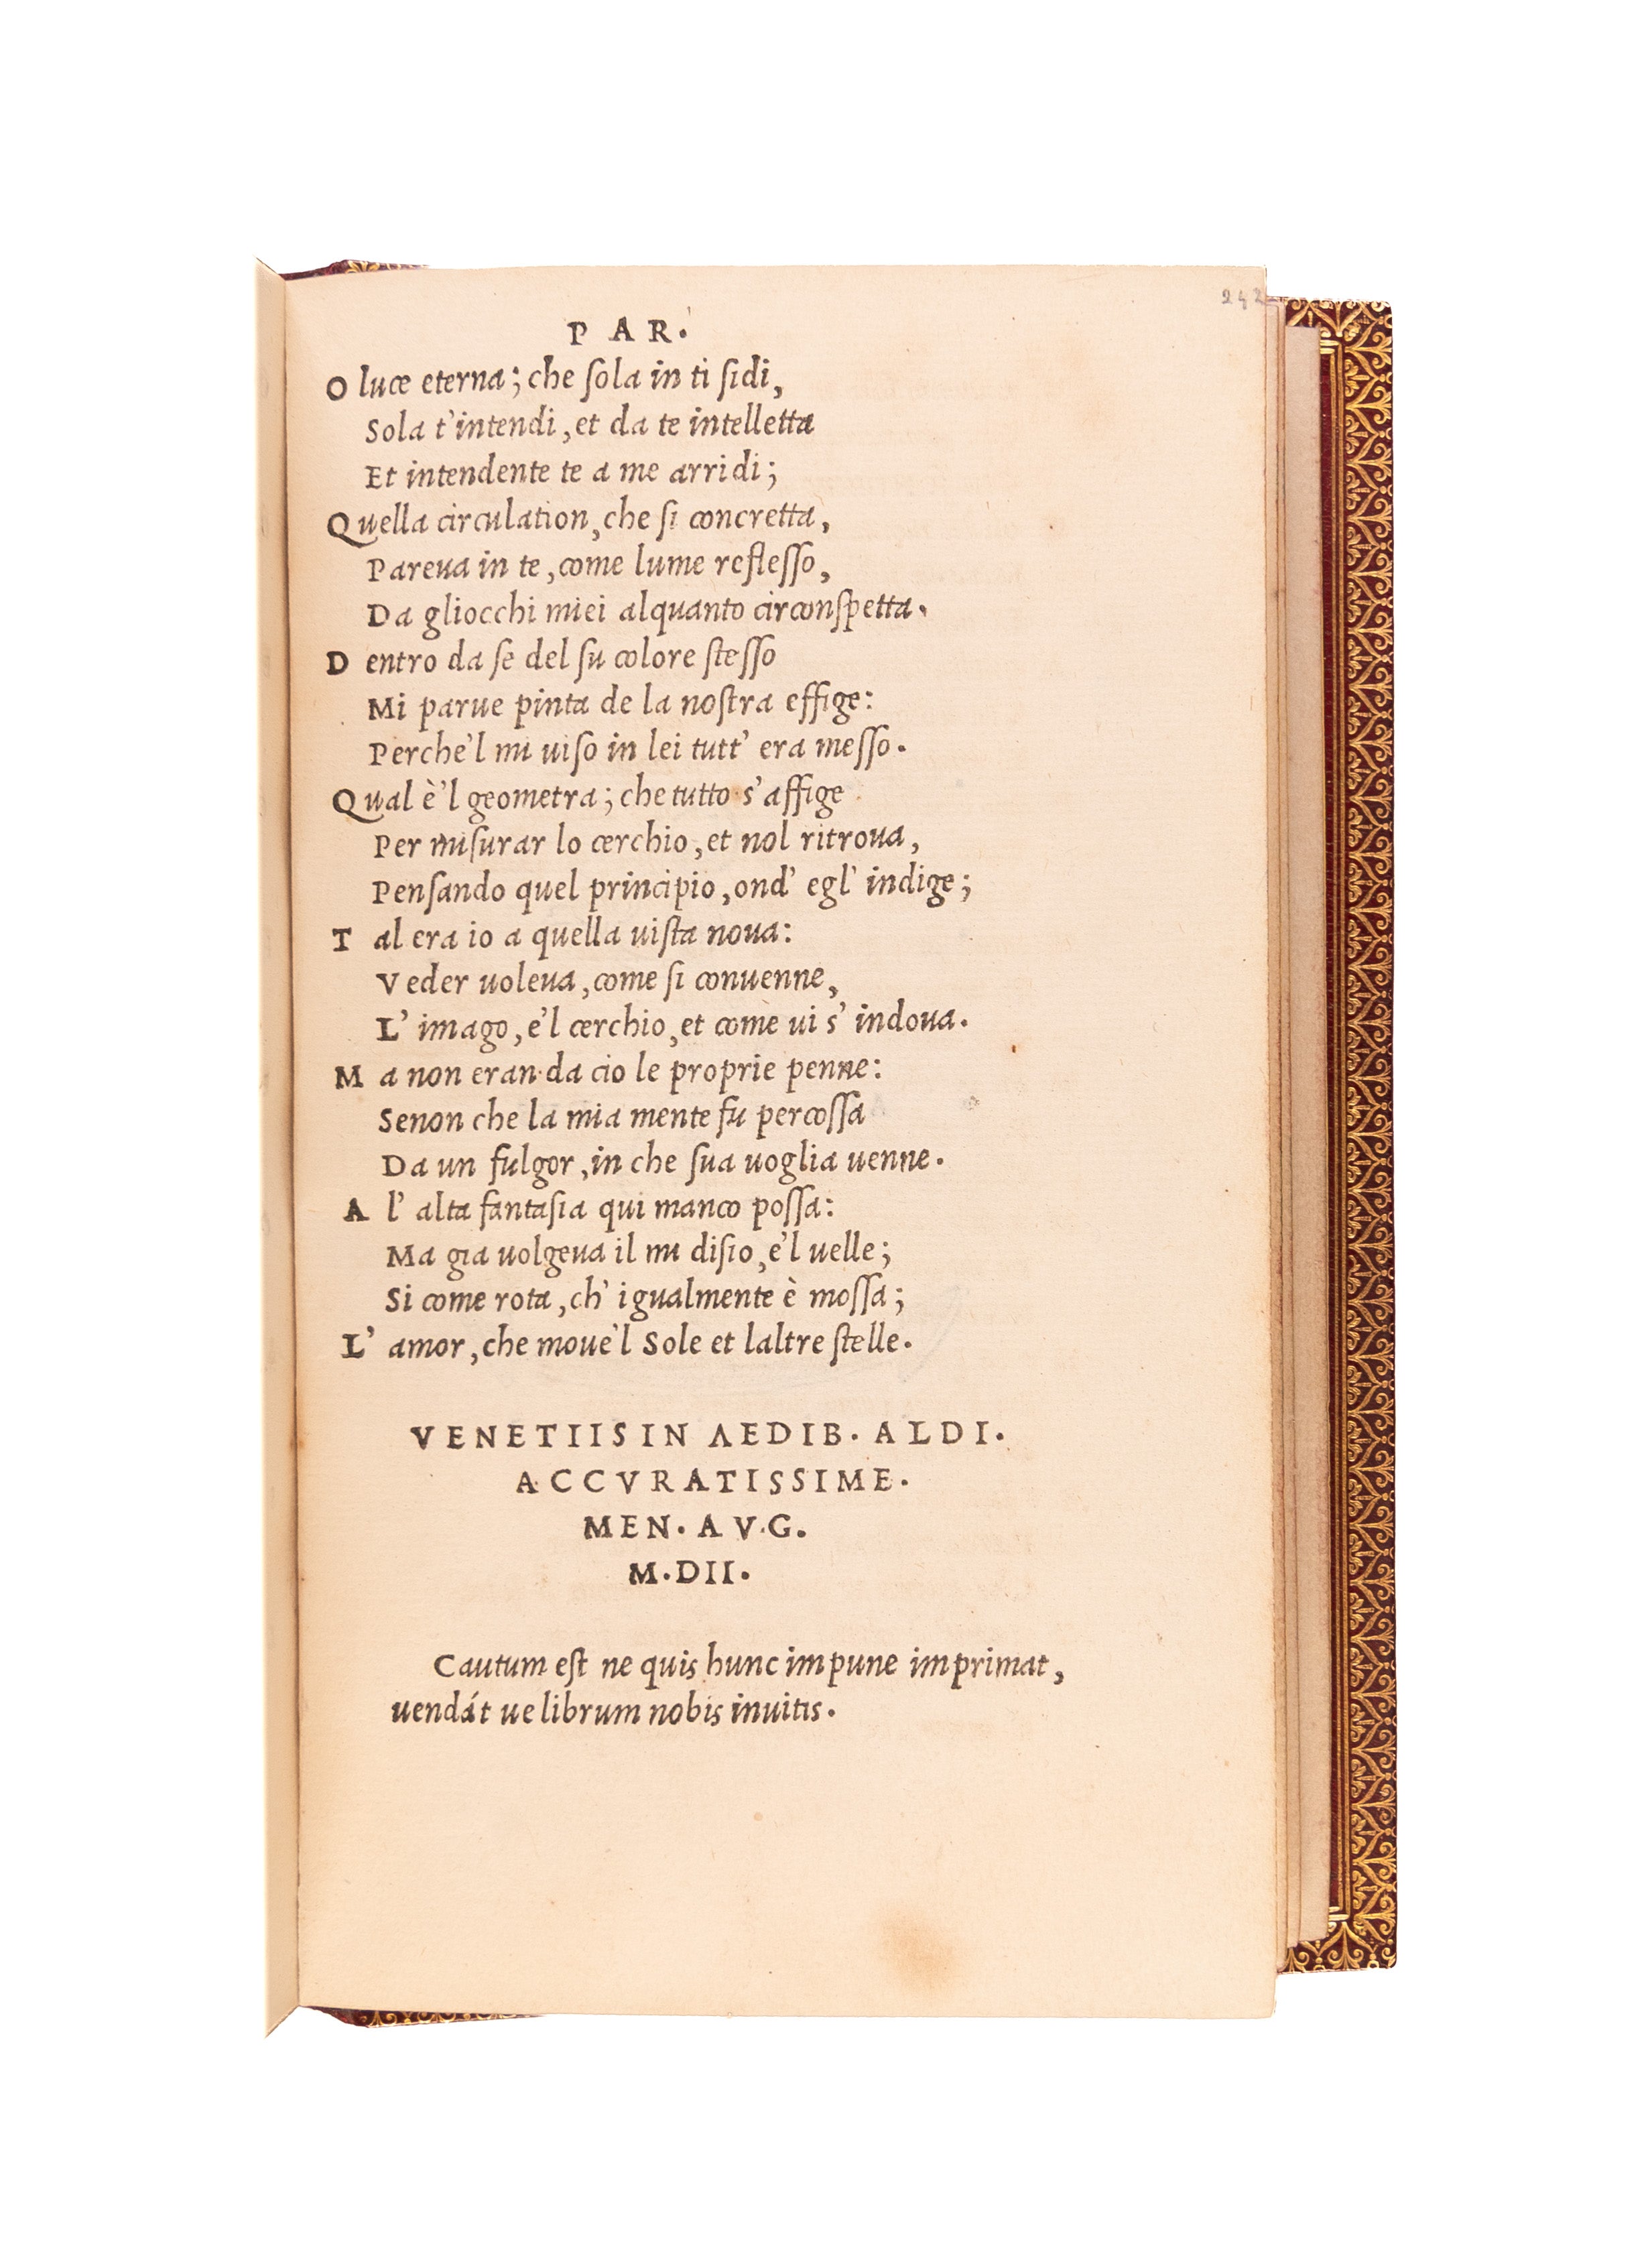 242
PAR.
O luce eterna; che ſola in ti ſidi,
Sola t'intendi, et da te intelletta
Et intendente te a me arridi;
Quella circulation, che ſi concretta,
Pareua in te, come lume refleſſo,
Da gliocchi miei alquanto circonſpetta.
D entro da ſe del ſu colore ſteſſo
Mi parue pinta de la noſtra effige:
Perche'l mi uiſo in lei tutt' era meſſo.
Qual è'l geometra; che tutto s'affige
Per miſurar lo cerchio, et nol ritroua,
Penſando quel principio, ond' egl' indige;
T al era io a quella uiſta noua:
Veder uoleua, come ſi conuenne,
L' imago, e'l cerchio, et come ui s' indoua.
M a non eran da cio le proprie penne:
Senon che la mia mente fu percoſſa
Da un fulgor, in che ſua uoglia uenne.
A l' alta fantaſia qui manco poſſa:
Ma gia uolgeua il mi diſio, e'l uelle;
Si come rota, ch' igualmente è moſſa;
L' amor, che moue'l Sole et laltre ſtelle.
VENETIIS IN AEDIB. ALDI.
ACCVRATISSIME.
MEN. AVG.
M.DII.
Cautum eſt ne quis hunc impune imprimat,
uendát ue librum nobis inuitis.